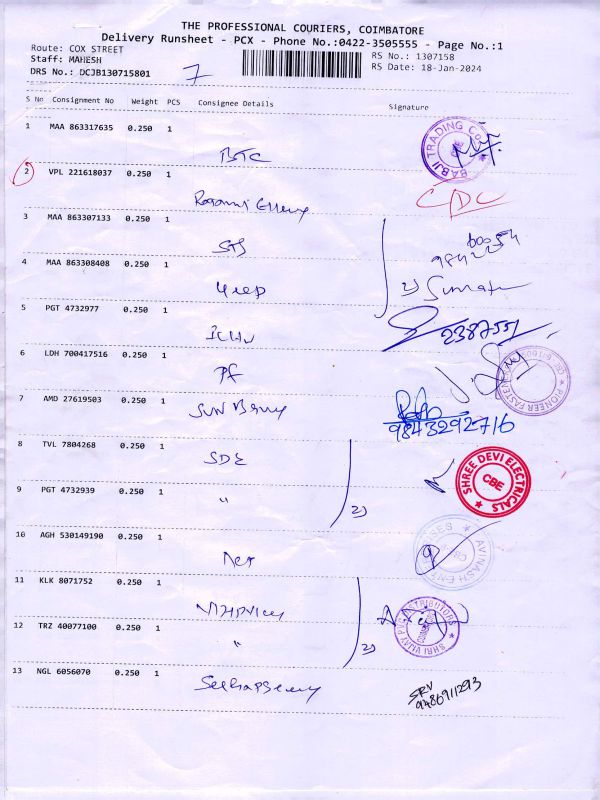 THE PROFESSIONAL COURIERS, COIMBATORE
Delivery Runsheet - PCX - Phone No.:0422-3505555 - Page No.:1
Route: COX STREET
RS No.: 1307158
Staff: MAHESH
RS Date: 18-Jan-2024
DRS No.: DCJB130715801
7
S No Consignment No Weight PCS Consignee Details Signature
1 MAA 863317635 0.250 1
BABJI TRADING Co
BTC
2 VPL 221618037 0.250 1
CDC
3 MAA 863307133 0.250 1
STS
4 MAA 863308408 0.250 1
2)
5 PGT 4732977 0.250 1
2387551
6 LDH 700417516 0.250 1
PF
PIONEER FASTENER
7 AMD 27619503 0.250 1
SUN
9843292716
8 TVL 7804268 0.250 1
SDE
SHREE DEVI ELECTRICALS
CBE
9 PGT 4732939 0.250 1
"
2)
10 AGH 530149190 0.250 1
AVINASH ENT
11 KLK 8071752 0.250 1
SHRI VIJAY PVC DISTRIBUTORS
12 TRZ 40077100 0.250 1
"
2)
13 NGL 6056070 0.250 1
SRV
9486911293